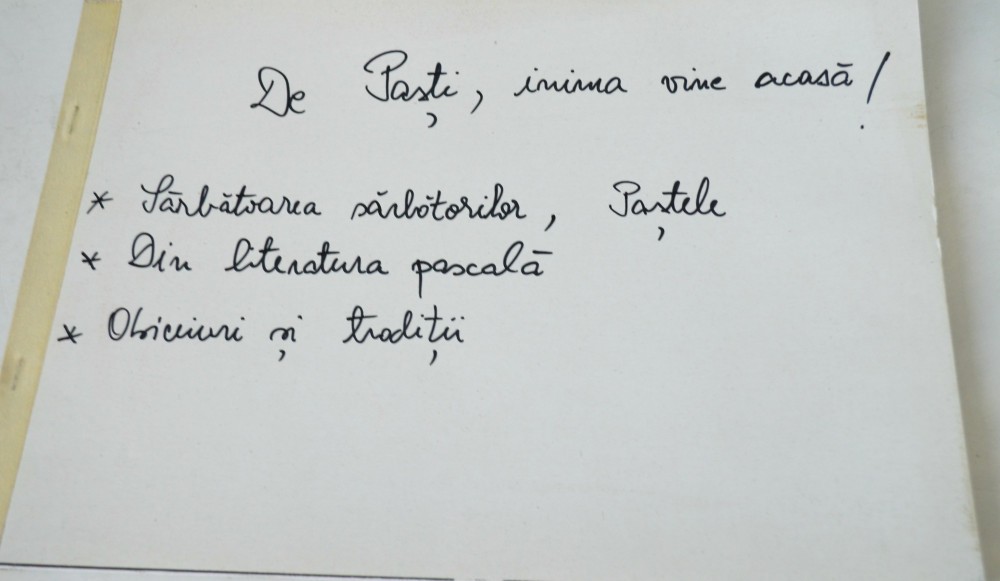 De Paști, inima vine acasă!
* Sărbătoarea sărbătorilor, Paștele
* Din literatura pascală
* Obiceiuri și tradiții